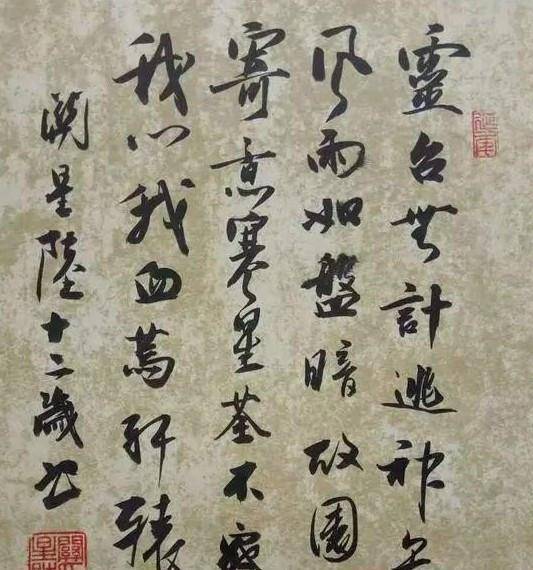 靈台無計逃神矢
風雨如盤暗故園
寄意寒星荃不察
我以我血薦軒轅
關星陸十二歲書